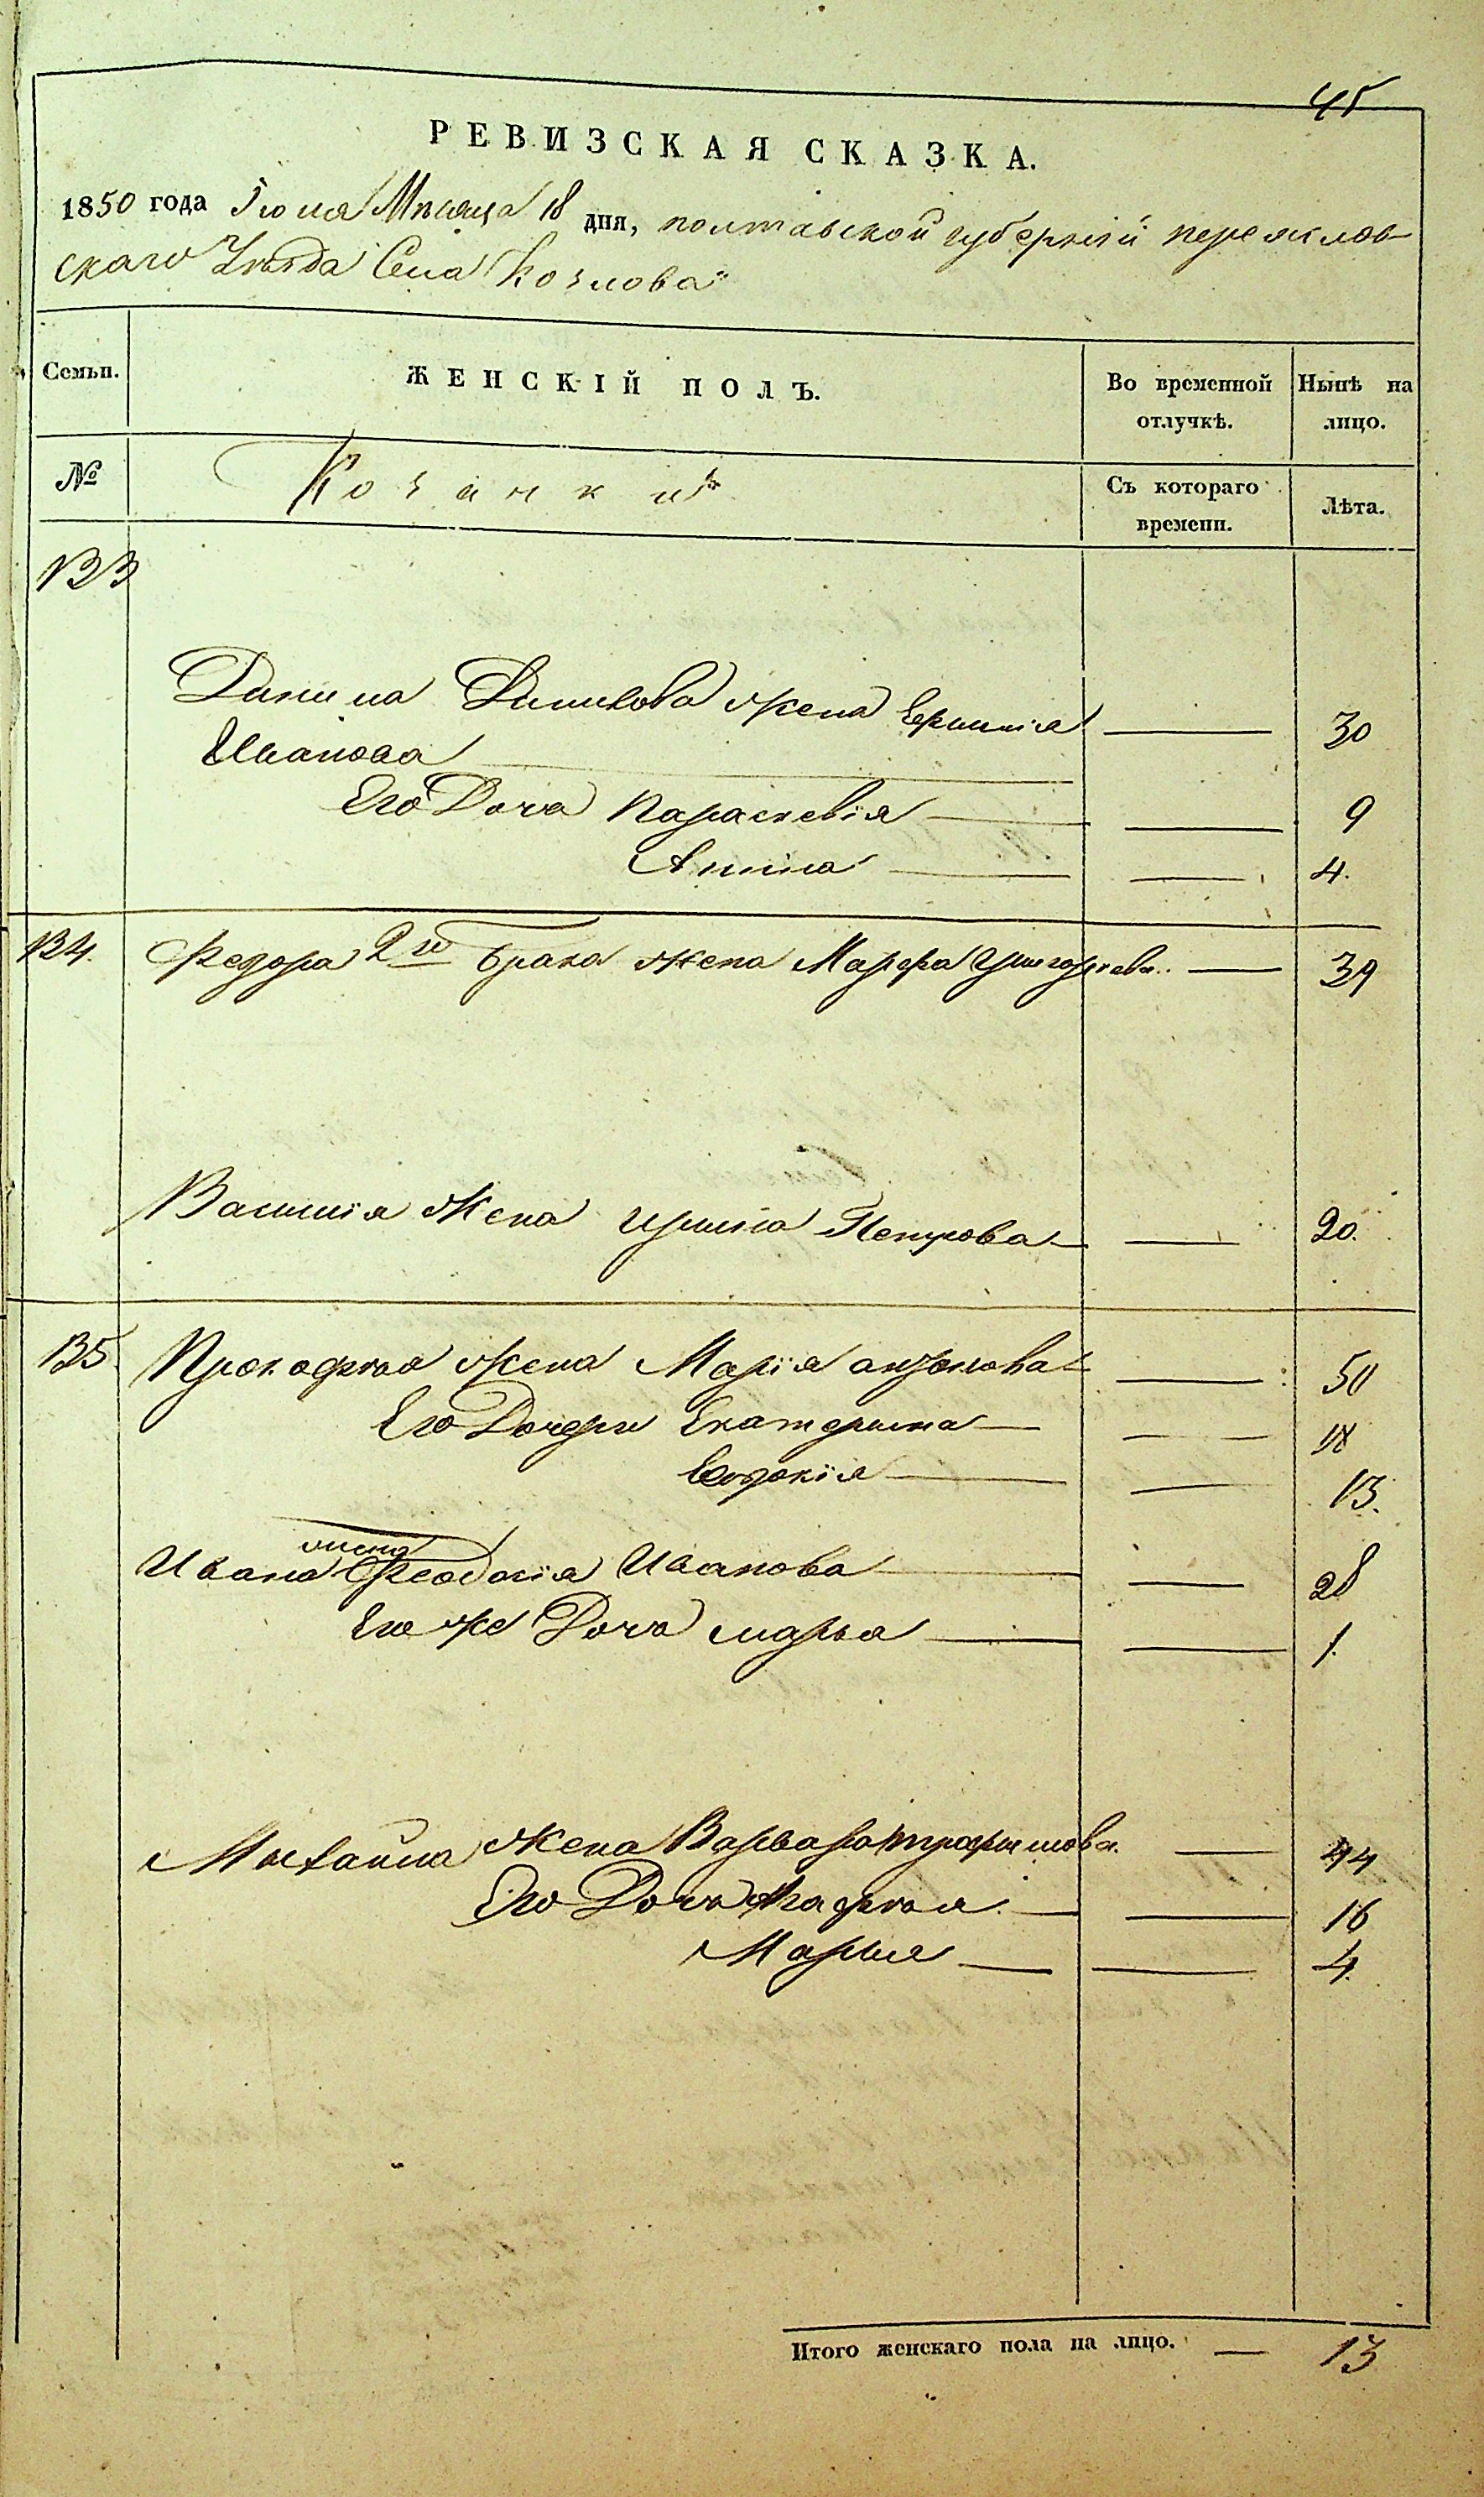 45
РЕВИЗСКАЯ СКАЗКА.
1850 года Іюля Мѣсяца 18 дня, полтавской губерніи переяслов-
скаго Уѣзда Села Козлова
Семьи. ЖЕНСКІЙ ПОЛЪ. Во временной отлучкѣ. Нынѣ на лицо.
№ Козачки Съ котораго времени. Лѣта.
133
Данила жена 30
Иванова
Его Дочь Параскевія 9
Анна 4.
134. Федора 2го брака жена Марфа Григорьева 39
Василія Жена Ирина Петрова 20.
135. Прокофья Жена Марія антонова 50
Его Дочери Екатерина 18
Евдокія 13.
жена
Ивана Феодосія Иванова 28
Его же Дочь марья 1.
Михайла жена Варвара трофимова 44
Его Дочь Агафья 16
Марья 4.
Итого женскаго пола на лицо. — 13